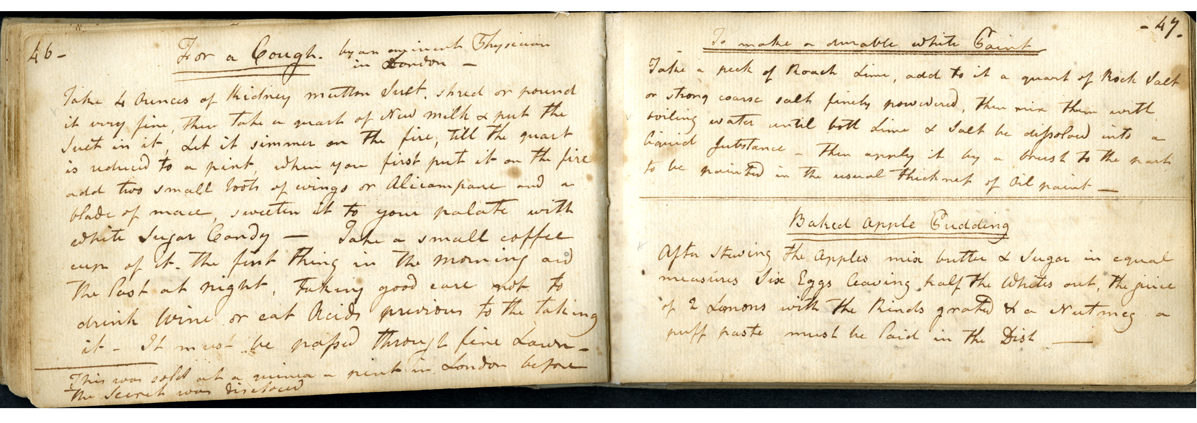 46-
For a Cough. by an eminent Physician
in London -
Take 4 Ounces of Kidney mutton Suet, shred or pound
it very fine, then take a quart of New milk & put the
Suet in it, Let it simmer on the fire, till the quart
is reduced to a pint, when you first put it on the fire
add two small roots of or Alicampane and a
blade of mace, sweeten it to your palate with
white Sugar Candy - Take a small coffee
cup of it the first thing in the morning and
the last at night, taking good care not to
drink Wine or eat Acids previous to the taking
it - It must be passed through fine Lawn -
This was sold at a guinea a pint in London before
the Secret was disclosed
- 47.
To make a durable white Paint
Take a peck of Roach Lime, add to it a quart of Rock Salt
or strong coarse salt finely powdered, then mix them with
boiling water until both Lime & Salt be dissolved into a
liquid Substance - then apply it by a brush to the part
to be painted in the usual thickness of Oil paint -
Baked Apple Pudding
After Stewing the Apples mix butter & Sugar in equal
measures Six Eggs leaving half the Whites out, the juice
of 2 Lemons with the Rinds grated & a Nutmeg a
puff paste must be laid in the Dish -